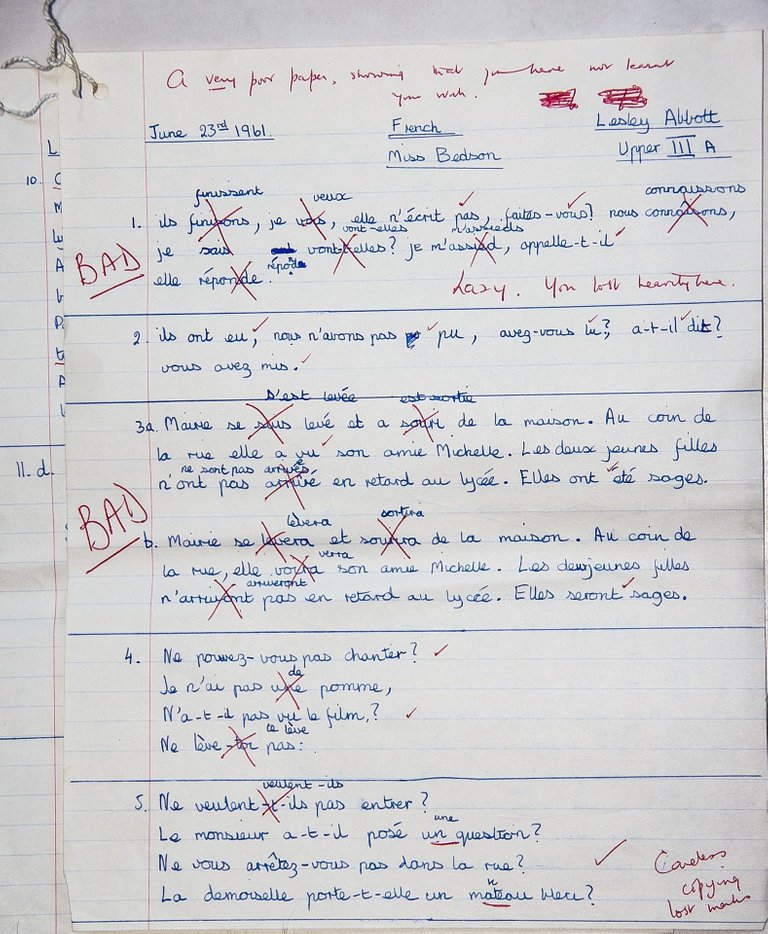 A very poor paper, showing that you have not learnt
your work.
June 23rd 1961. French Lesley Abbott
Miss Bedson Upper III A
L
10. C
M
W
A
L
P.
t
A
L
11. d.
finissent veux connaissons
1. ils finirons, je vais, elle n'écrit pas, faites-vous? nous connaîsons,
vont-elles m'assieds
je sais vont-t-elles? je m'assied, appelle-t-il
BAD
répond
elle réponde.
Lazy. You lost heavily here.
2. ils ont eu, nous n'avons pas pu, avez-vous lu?, a-t-il dit?
vous avez mis.
s'est levée est sortie
3a. Mairie se suis levé et a souri de la maison. Au coin de
la rue elle a vu son amie Michelle. Les deux jeunes filles
ne sont pas arrivés
n'ont pas arrivé en retard au lycée. Elles ont été sages.
BAD
lèvera sortira
b. Mairie se levera et sourira de la maison. Au coin de
verra
la rue, elle voira son amie Michelle. Les deuxjeunes filles
arriveront
n'arriront pas en retard au lycée. Elles seront sages.
4. Ne pouvez-vous pas chanter?
de
Je n'ai pas une pomme,
N'a-t-il pas vu le film,?
te lève
Ne lève-toi pas:
veulent-ils
5. Ne veulent-t-ils pas entrer?
une
Le monsieur a-t-il posé un question?
Ne vous arrêtez-vous pas dans la rue?
La demoiselle porte-t-elle un mateau bleu?
Careless
copying
lost marks